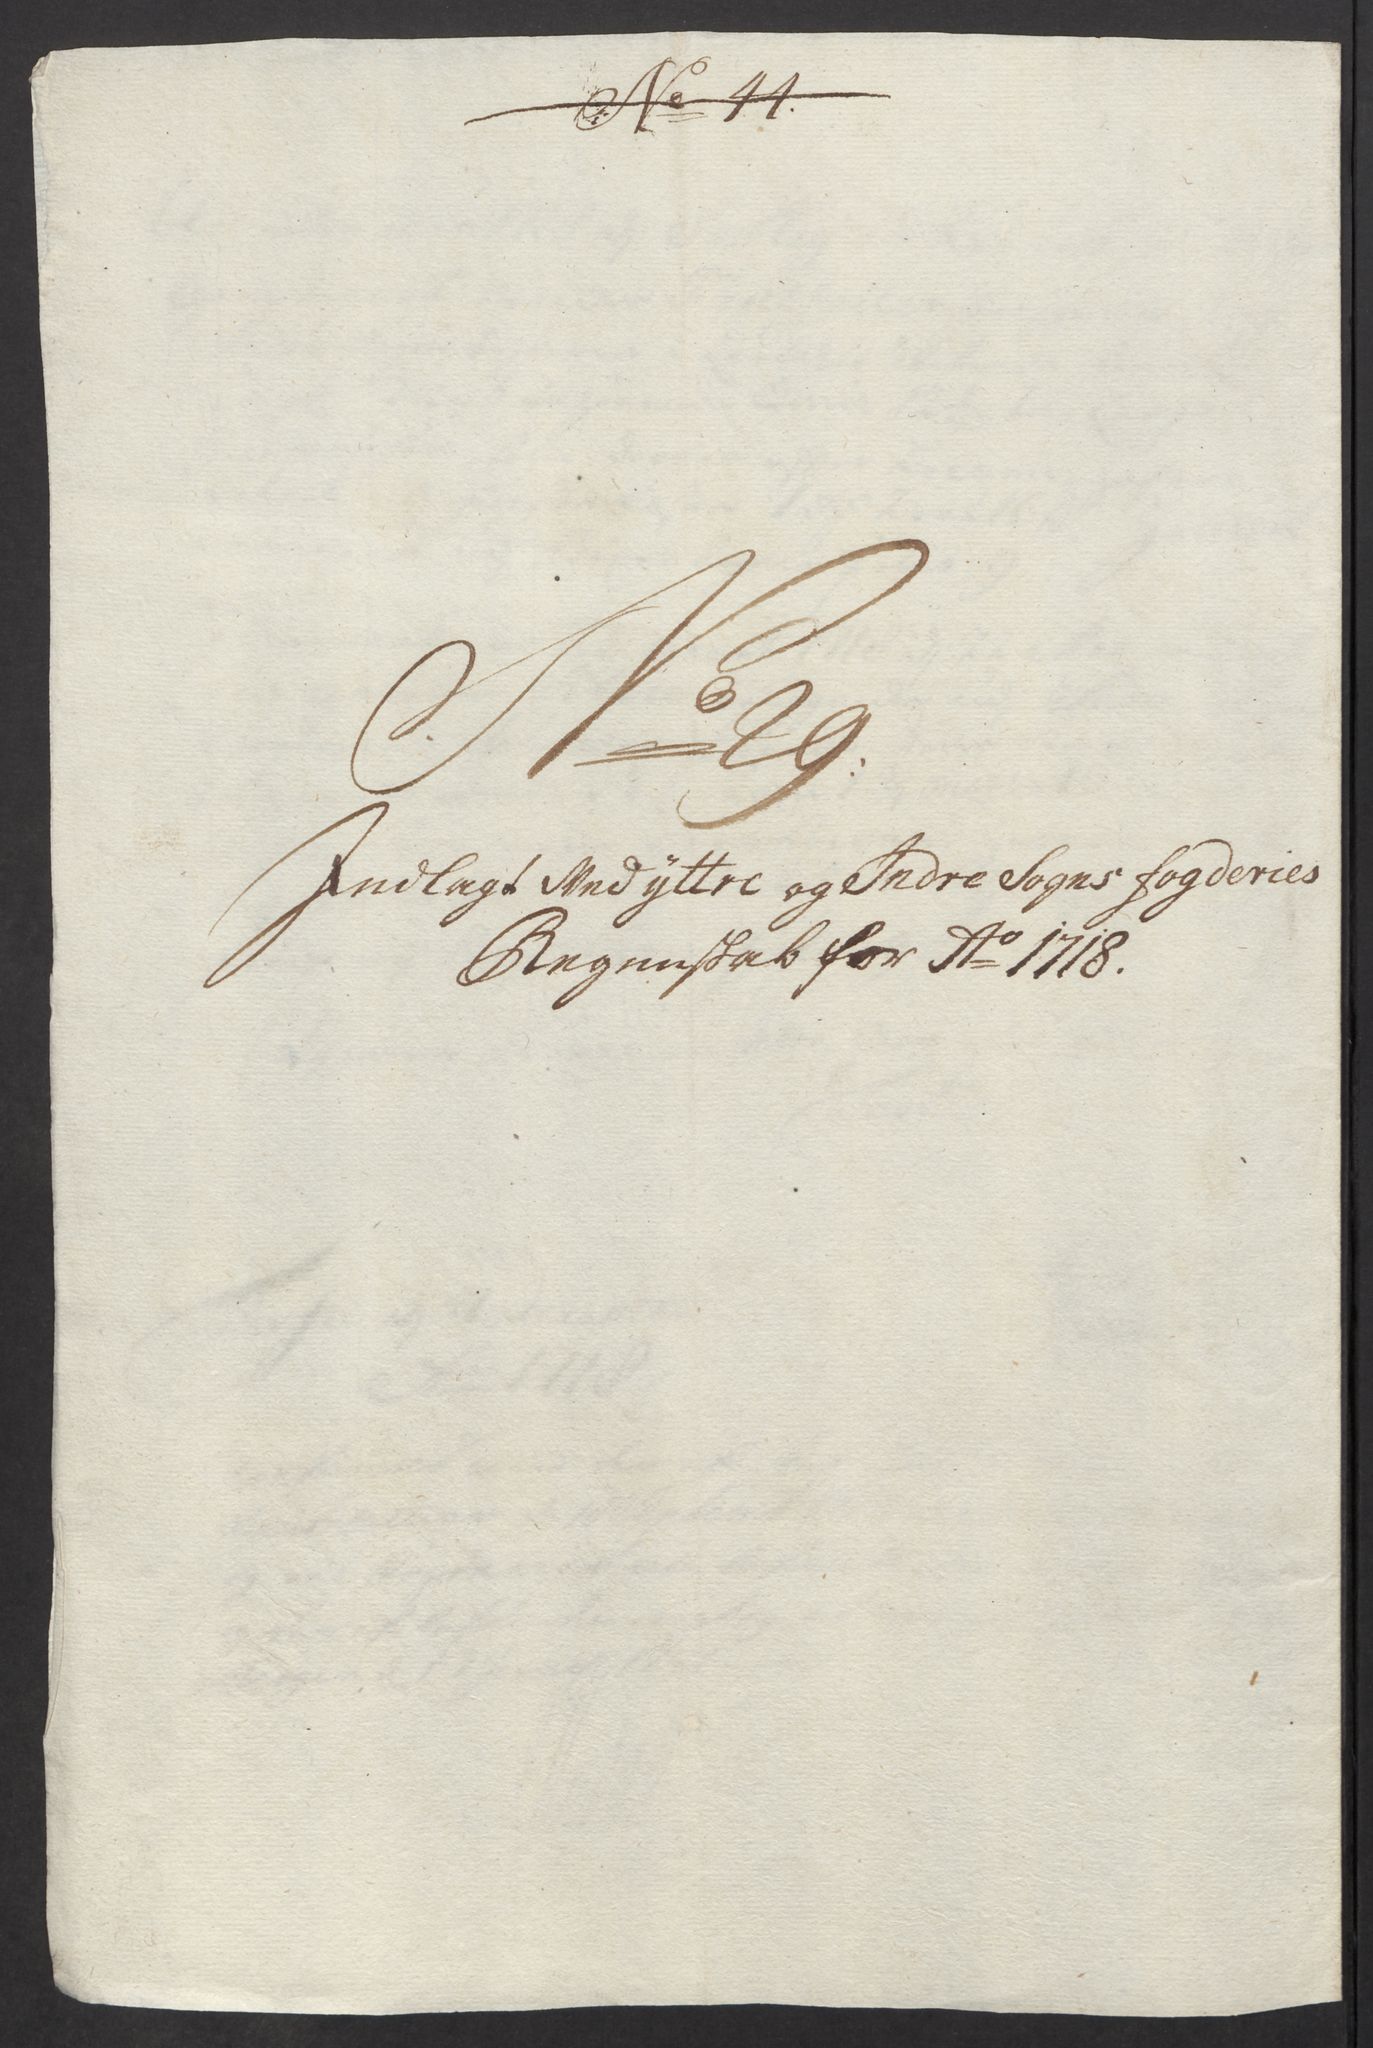 No 44.
No 29:
Indlagt Med ÿttre og Indre Sogns fogderies
Regenskab for Ao 1718.